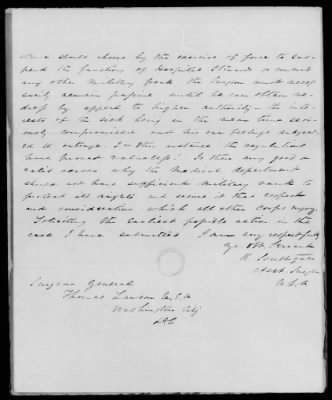 should choose by the exercise of force to sus-
pend the functions of Hospital Steward &
any other Military the Surgeon must
remain passive until he can obtain re-
dress by appeal to higher authority – the inte-
rests of the sick being in the mean time seri-
ously compromised and his own feelings subject-
ed to outrage. In this instance the regulations
have proved valueless! Is there any good or
valid reason why the Medical department
should not have sufficient Military rank to
protect its rights and secure it that respect
and consideration which all other Corps enjoy.
Soliciting the earliest possible action in the
case I have submitted I am very respectfully
Yr. Obt. Servant
R. Southgate
Asst. Surgn
U.S.A
Surgeon General
Thomas Lawson U.S.A
Washington City
D.C